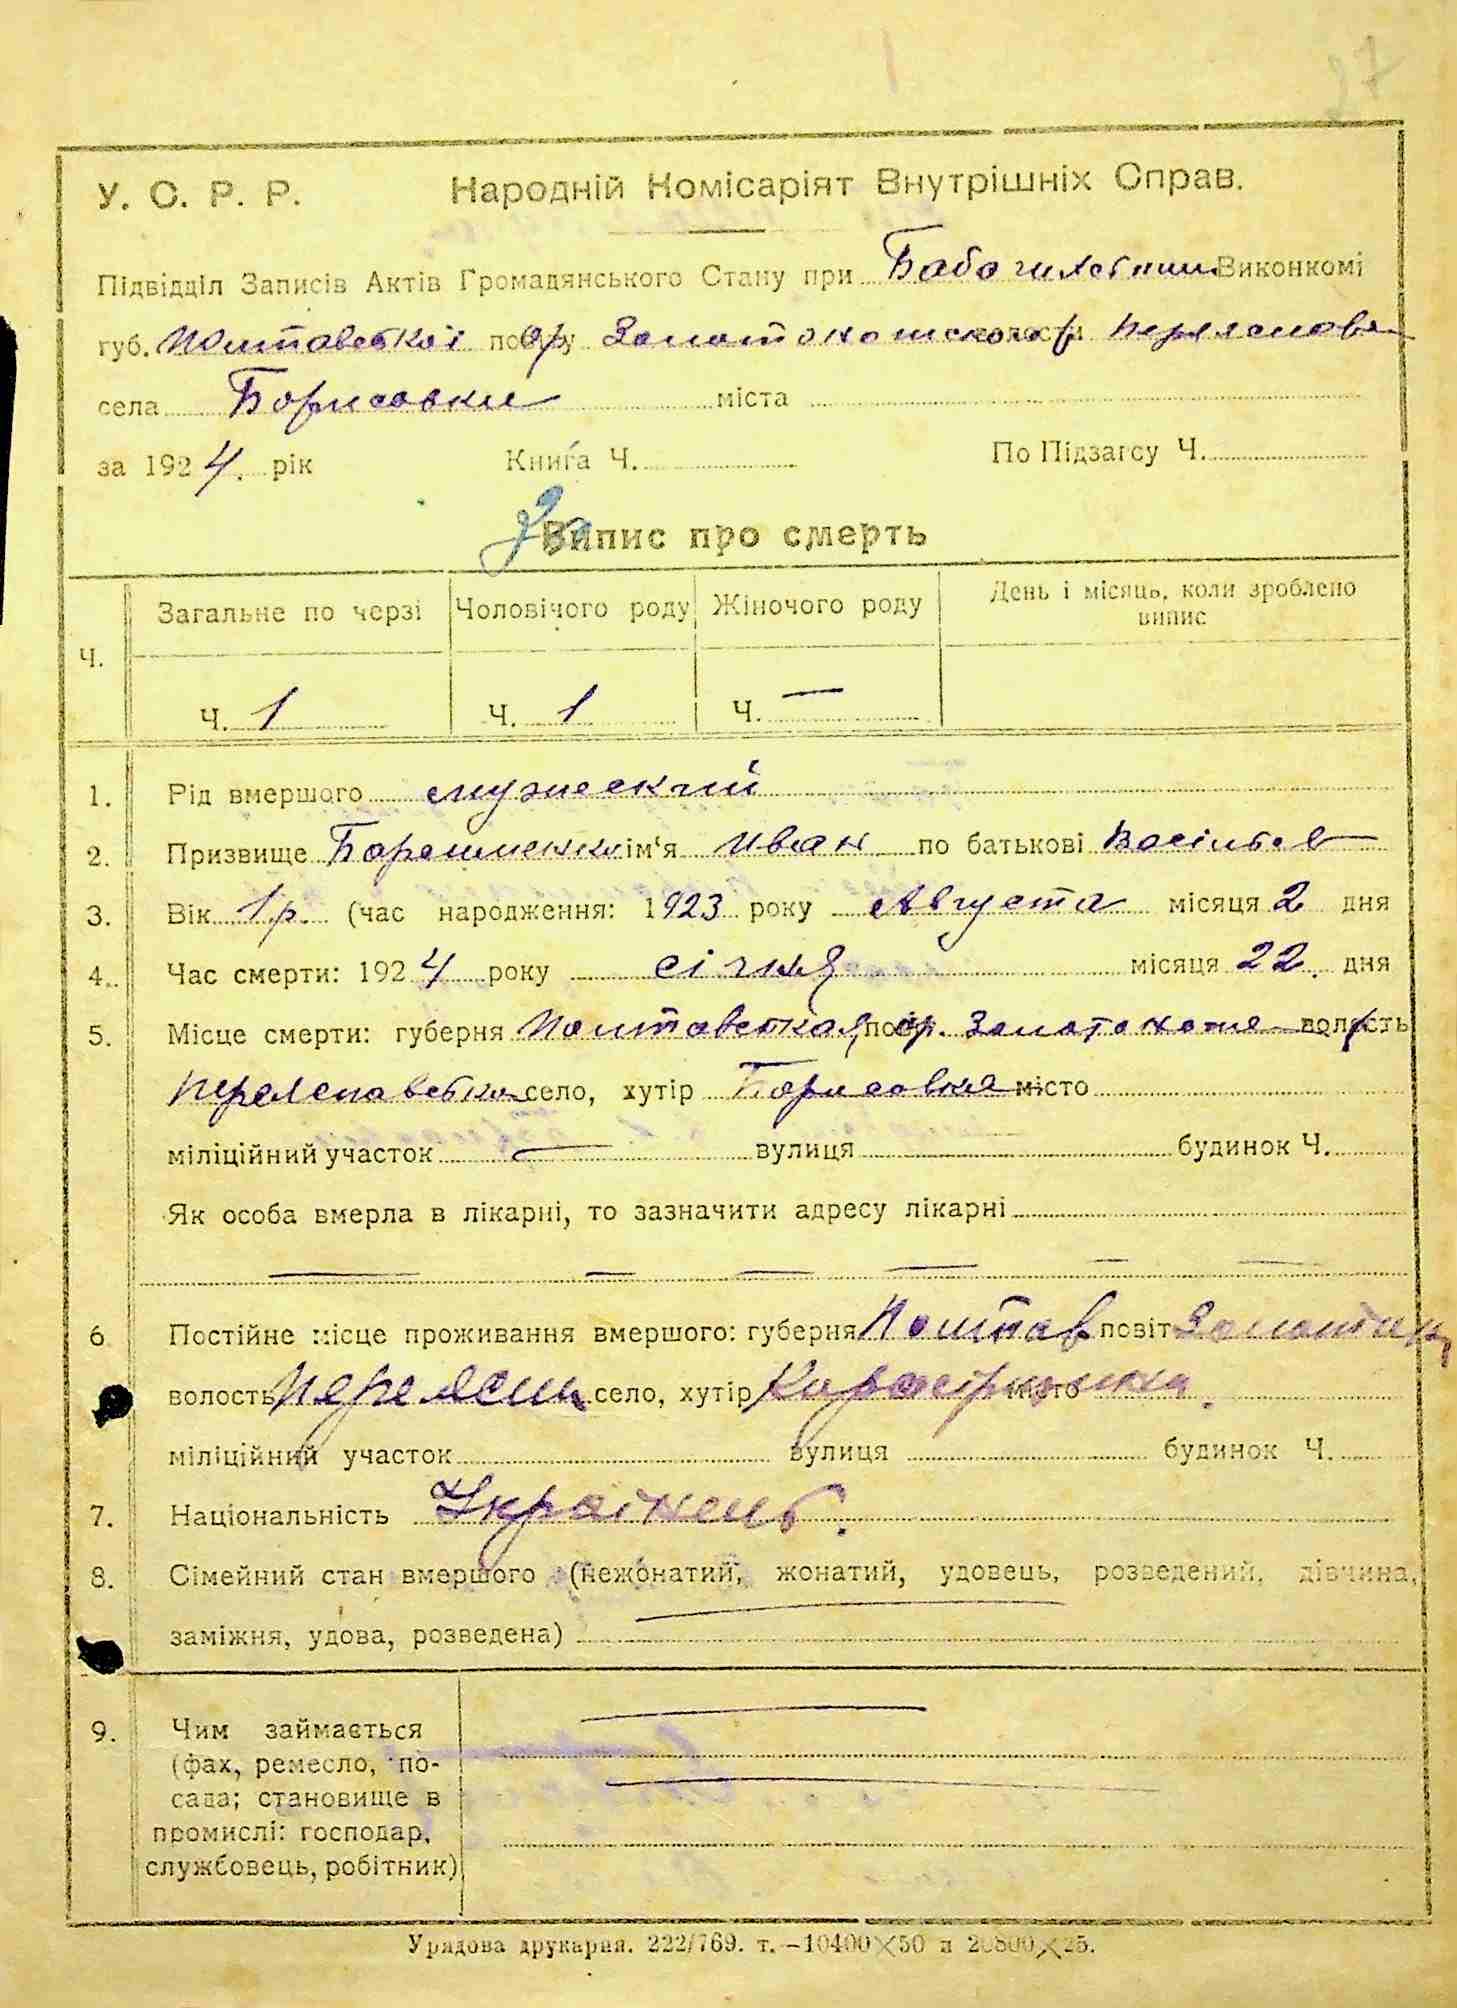 27
У. С. Р. Р. Народній Комісаріят Внутрішніх Справ.
Підвідділ Записів Актів Громадянського Стану при Виконкомі
губ. Полтавської повіту волости
села Борисовки міста
за 1924. рік Книга Ч. По Підзагсу Ч.
Випис про смерть
Ч. Загальне по черзі Чоловічого роду Жіночого роду День і місяць, коли зроблено випис
Ч. 1 Ч. 1 Ч. —
1. Рід вмершого мужеский
2. Призвище ім'я Иван по батькові
3. Вік 1 р. (час народження: 1923 року Августа місяця 2 дня
4. Час смерти: 1924 року січня місяця 22. дня
5. Місце смерти: губерня Полтавская пов волость
село, хутір Борисовка місто
міліційний участок — вулиця будинок Ч.
Як особа вмерла в лікарні, то зазначити адресу лікарні
— — — — — —
6. Постійне місце проживання вмершого: губерня Полтав повіт
волость село, хутір місто
міліційний участок вулиця будинок Ч.
7. Національність Українець.
8. Сімейний стан вмершого (нежонатий, жонатий, удовець, розведений, дівчина,
заміжня, удова, розведена) —
9. Чим займається
(фах, ремесло, по-
сада; становище в
промислі: господар,
службовець, робітник)
Урядова друкарня. 222/769. т. —10400×50 и 20800×25.